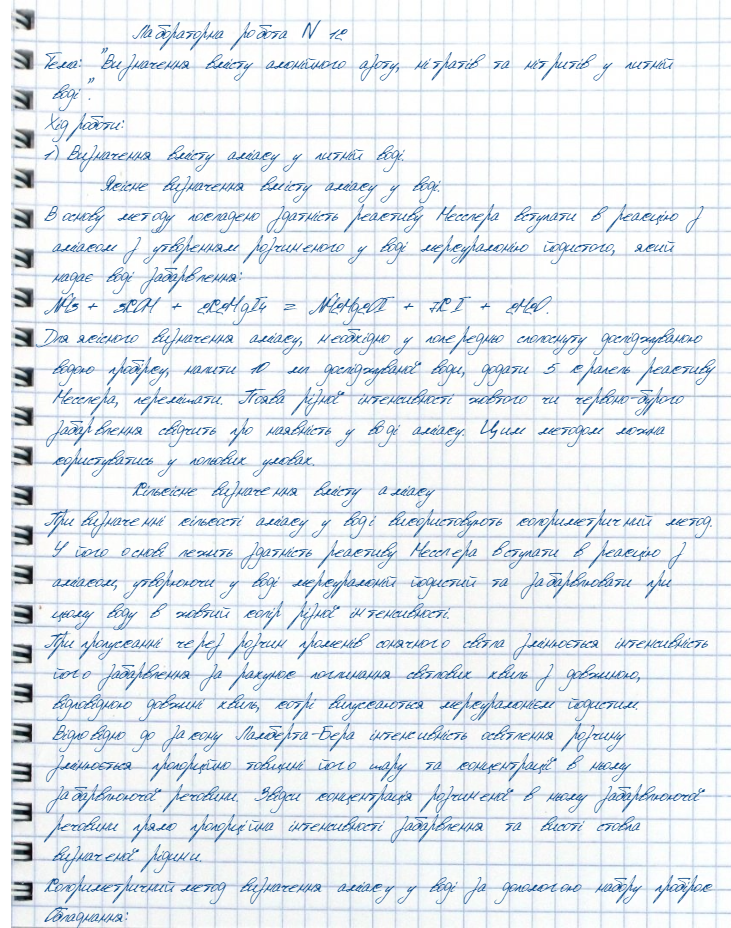 Лабораторна робота N 12
Тема: "Визначення вмісту амонійного азоту, нітратів та нітритів у питній
воді".
Хід роботи:
1) Визначення вмісту аміаку у питній воді.
Якісне визначення вмісту аміаку у воді.
В основу методу покладено здатність реактиву Несслера вступати в реакцію з
аміаком з утворенням розчиненого у воді меркурамонію йодистого, який
надає воді забарвлення:
NH3 + 3KOH + 2K2HgI4 = NH2Hg2OI + 7KI + 2H2O.
Для якісного визначення аміаку, необхідно у попередньо сполоснуту досліджуваною
водою пробірку, налити 10 мл досліджуваної води, додати 5 крапель реактиву
Несслера, перемішати. Поява різної інтенсивності жовтого чи червоно-бурого
забарвлення свідчить про наявність у воді аміаку. Цим методом можна
користуватись у польових умовах.
Кількісне визначення вмісту аміаку
При визначенні кількості аміаку у воді використовують колориметричний метод.
У його основі лежить здатність реактиву Несслера вступати в реакцію з
аміаком, утворюючи у воді меркурамоній йодистий та забарвлювати при
цьому воду в жовтий колір різної інтенсивності.
При пропусканні через розчин променів сонячного світла змінюється інтенсивність
його забарвлення за рахунок поглинання світлових хвиль з довжиною,
відповідною довжині хвиль, котрі випускаються меркурамонієм йодистим.
Відповідно до закону Ламберта-Бера інтенсивність освітлення розчину
змінюється пропорційно товщині його шару та концентрації в ньому
забарвлюючої речовини. Звідси концентрація розчиненої в ньому забарвлюючої
речовини прямо пропорційна інтенсивності забарвлення та висоті стовпа
визначеної рідини.
Колориметричний метод визначення аміаку у воді за допомогою набору пробірок
Обладнання: